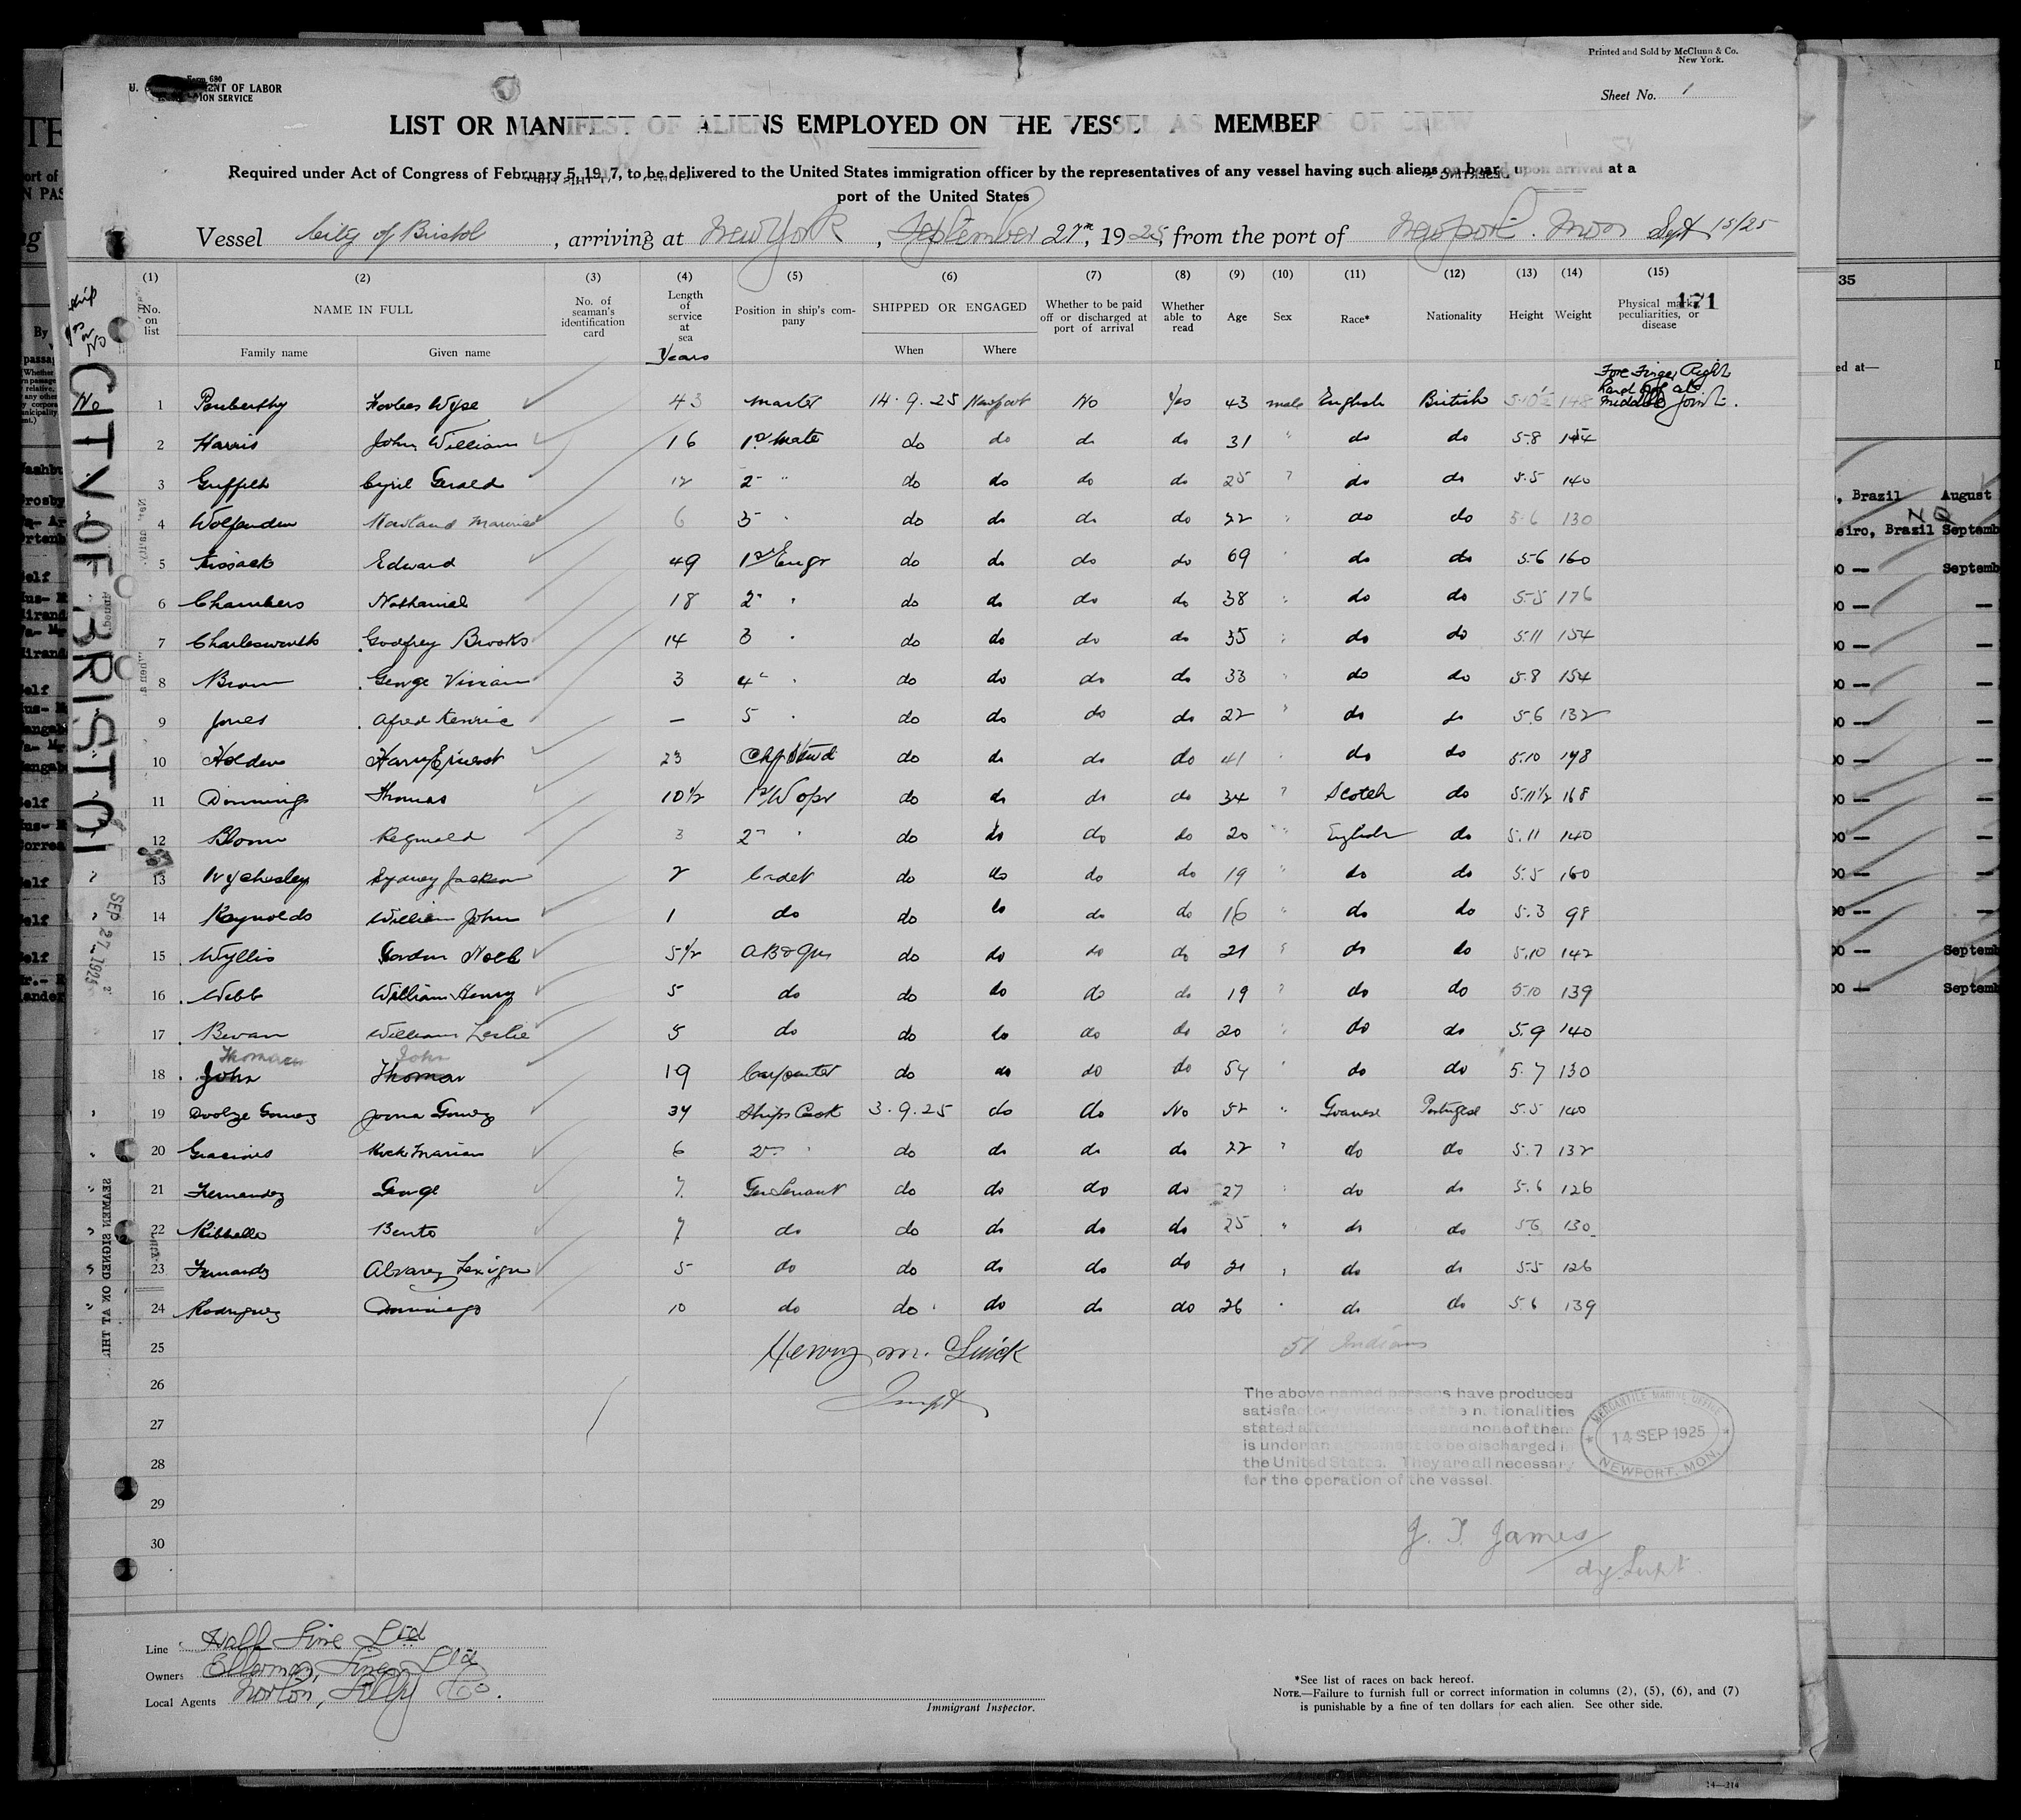 Printed and Sold by McClunn & Co.
New York.
Form 680
U. ENT OF LABOR
ION SERVICE
Sheet No. 1
LIST OR MANIFEST OF ALIENS EMPLOYED ON THE VESSEL AS MEMBERS OF CREW
Required under Act of Congress of February 5, 1917, to be delivered to the United States immigration officer by the representatives of any vessel having such aliens on board upon arrival at a
port of the United States
Vessel City of Bristol, arriving at New York, September 27th, 1925, from the port of Newport. Mon Sept 15/25
(1) (2) (3) (4) (5) (6) (7) (8) (9) (10) (11) (12) (13) (14) (15)
No. on list NAME IN FULL No. of seaman's identification card Length of service at sea Position in ship's company SHIPPED OR ENGAGED Whether to be paid off or discharged at port of arrival Whether able to read Age Sex Race* Nationality Height Weight Physical marks, peculiarities, or disease
171
Family name Given name Years When Where
Fore Finger Right
hand off at
middle joint.
1 Penberthy Wyse 43 Master 14.9.25 Newport No Yes 43 male English British 5.10½ 148
2 Harris John William 16 1st Mate do do do do 31 " do do 5.8 154
3 Griffith Cyril Gerald 12 2 " do do do do 25 " do do 5.5 140
4 Wolfenden 6 3 " do do do do 22 " do do 5.6 130
5 Kissack Edward 49 1st Engr do do do do 69 " do do 5.6 160
6 Chambers Nathaniel 18 2 " do do do do 38 " do do 5.5 176
7 Charlesworth Godfrey Brooks 14 3 " do do do do 35 " do do 5.11 154
8 Brown George Vivian 3 4 " do do do do 33 " do do 5.8 154
9 Jones Alfred Kenric — 5 " do do do do 22 " do do 5.6 132
10 Holden Harry Ernest 23 Chf Stwd do do do do 41 " do do 5.10 198
11 Dinnings Thomas 10½ 1st W opr do do do do 34 " Scotch do 5.11½ 168
12 Bloom Reginald 3 2 " do do do do 20 " English do 5.11 140
13 Wycherley Sydney Jackson 2 Cadet do do do do 19 " do do 5.5 160
14 Raynolds William John 1 do do do do do 16 " do do 5.3 98
15 Wyllis Gordon Noel 5½ AB & Qm do do do do 21 " do do 5.10 142
16 Webb William Henry 5 do do do do do 19 " do do 5.10 139
17 Bevan William Leslie 5 do do do do do 20 " do do 5.9 140
Thomas John
18 John Thomas 19 Carpenter do do do do 54 " do do 5.7 130
19 Gomez Gomez 34 Ships Cook 3.9.25 do do No 52 " Goanese Portugese 5.5 140
20 Gracious 6 2 " do do do do 22 " do do 5.7 132
21 Fernandez George 7 Gen Servant do do do do 27 " do do 5.6 126
22 Ribbello Bento 7 do do do do do 25 " do do 5.6 130
23 Fernandz Alvarez 5 do do do do do 21 " do do 5.5 126
24 Rodriguez Domingo 10 do do do do do 26 " do do 5.6 139
25 Henry M. Quick 51 Indians
26 Inspt
27
28
29
30
The above named persons have produced
satisfactory evidence of the nationalities
stated after their names and none of them
is under an agreement to be discharged in
the United States. They are all necessary
for the operation of the vessel.
MERCANTILE MARINE OFFICE
14 SEP 1925
NEWPORT, MON.
J. T. James
dy. Supt.
CITY OF BRISTOL
SEP 27 1925
SEAMEN SIGNED ON AT THI
Line Hall Line Ltd
Owners Ellerman Lines Ltd
Local Agents Norton, Lilly Co.
Immigrant Inspector.
*See list of races on back hereof.
NOTE.—Failure to furnish full or correct information in columns (2), (5), (6), and (7)
is punishable by a fine of ten dollars for each alien. See other side.
14—214
35
ed at—
, Brazil August
eiro, Brazil Septemb
Septemb
Septemb
Septemb